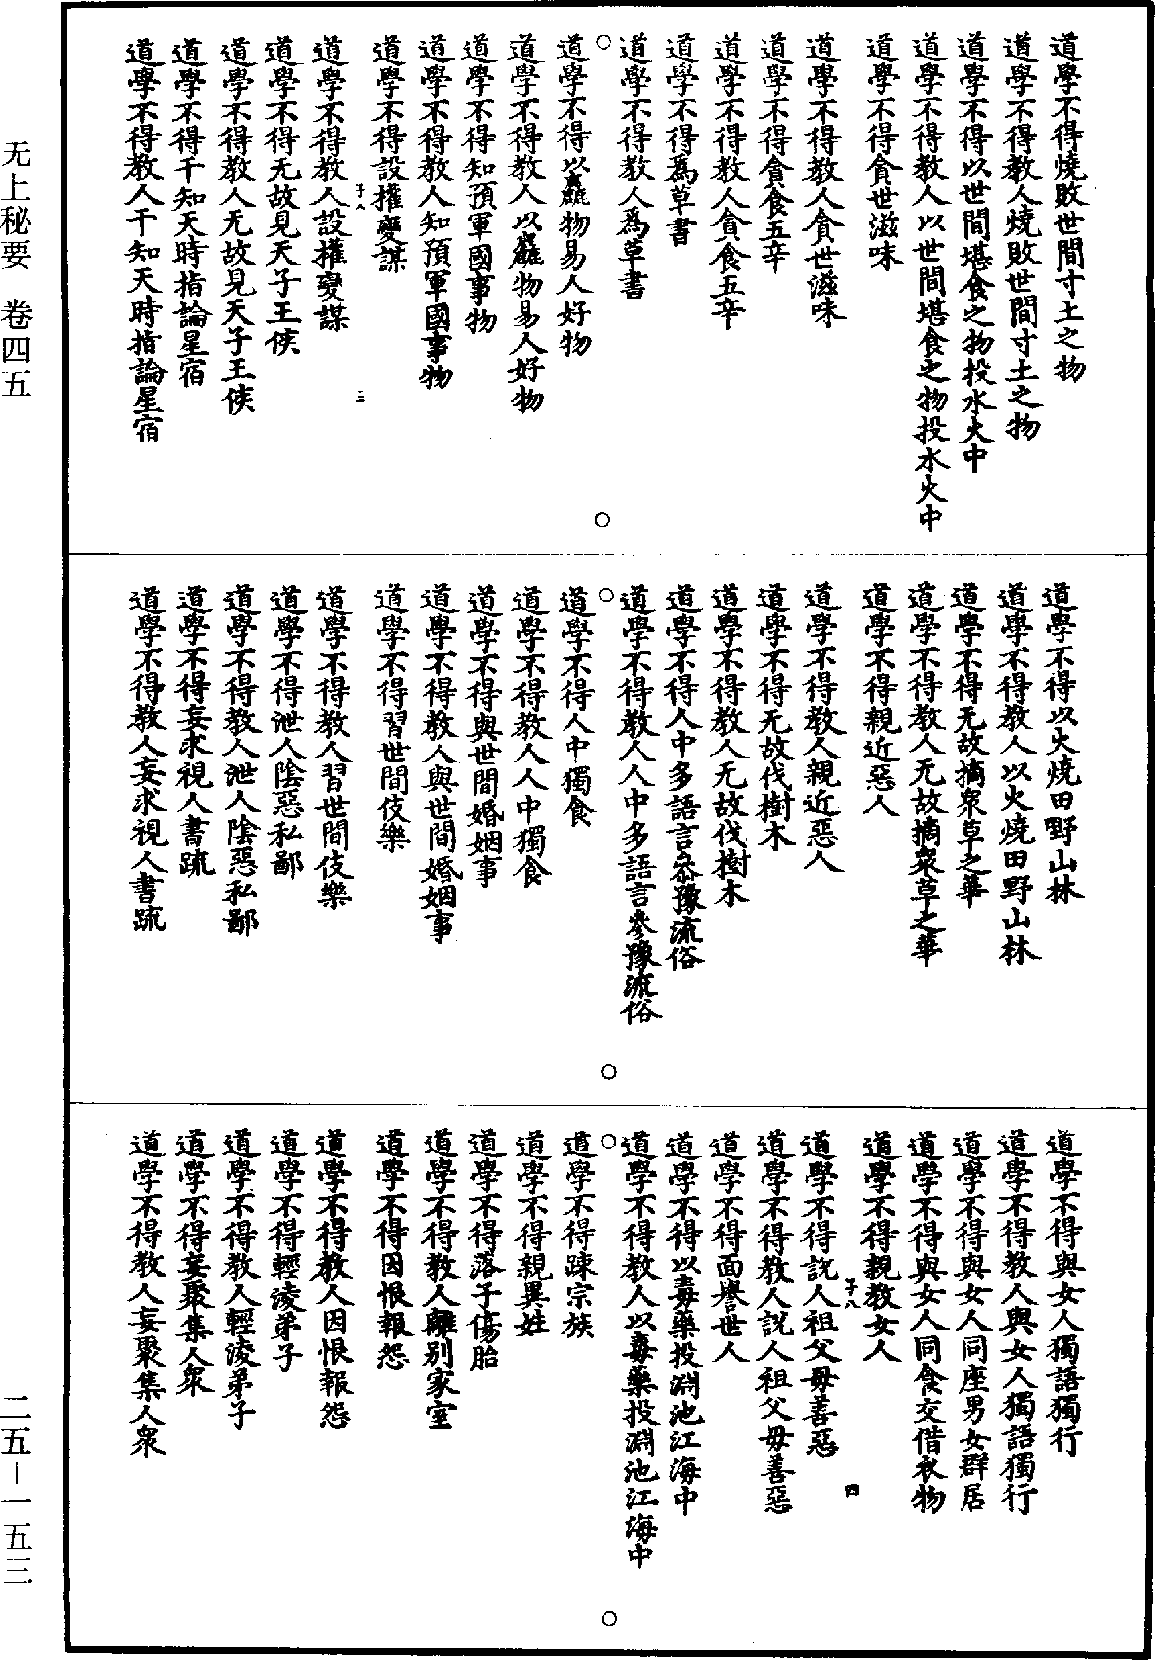 道學不得燒敗世間寸土之物
道學不得教人燒敗世間寸土之物
道學不得以世間堪食之物投水火中
道學不得教人以世間堪食之物投水火中
道學不得貪世滋味
道學不得教人貪世滋味
道學不得貪食五辛
道學不得教人貪食五辛
道學不得為草書
道學不得教人為草書
道學不得以麤物易人好物
道學不得教人以麤物易人好物
道學不得知預軍國事物
道學不得教人知預軍國事物
道學不得設權變謀
子八 三
道學不得教人設權變謀
道學不得无故見天子王侯
道學不得教人无故見天子王侯
道學不得干知天時指論星宿
道學不得教人干知天時指論星宿
道學不得以火燒田野山林
道學不得教人以火燒田野山林
道學不得无故摘衆草之華
道學不得教人无故摘衆草之華
道學不得親近惡人
道學不得教人親近惡人
道學不得无故伐樹木
道學不得教人无故伐樹木
道學不得人中多語言叅豫流俗
道學不得教人人中多語言參豫流俗
道學不得人中獨食
道學不得教人人中獨食
道學不得與世間婚姻事
道學不得教人與世間婚姻事
道學不得習世間伎樂
道學不得教人習世間伎樂
道學不得泄人陰惡私鄙
道學不得教人泄人陰惡私鄙
道學不得妄求視人書疏
道學不得教人妄求視人書疏
道學不得與女人獨語獨行
道學不得教人與女人獨語獨行
道學不得與女人同座男女群居
道學不得與女人同食交借衣物
道學不得親教女人
子八 四
道學不得說人祖父母善惡
道學不得教人說人祖父母善惡
道學不得面譽世人
道學不得以毒藥投淵池江海中
道學不得教人以毒藥投淵池江海中
道學不得踈宗族
道學不得親異姓
道學不得落子傷胎
道學不得教人離別家室
道學不得因恨報怨
道學不得教人因恨報怨
道學不得輕淩弟子
道學不得教人輕淩弟子
道學不得妄聚集人衆
道學不得教人妄聚集人衆
无上秘要 卷四五
二五－一五三